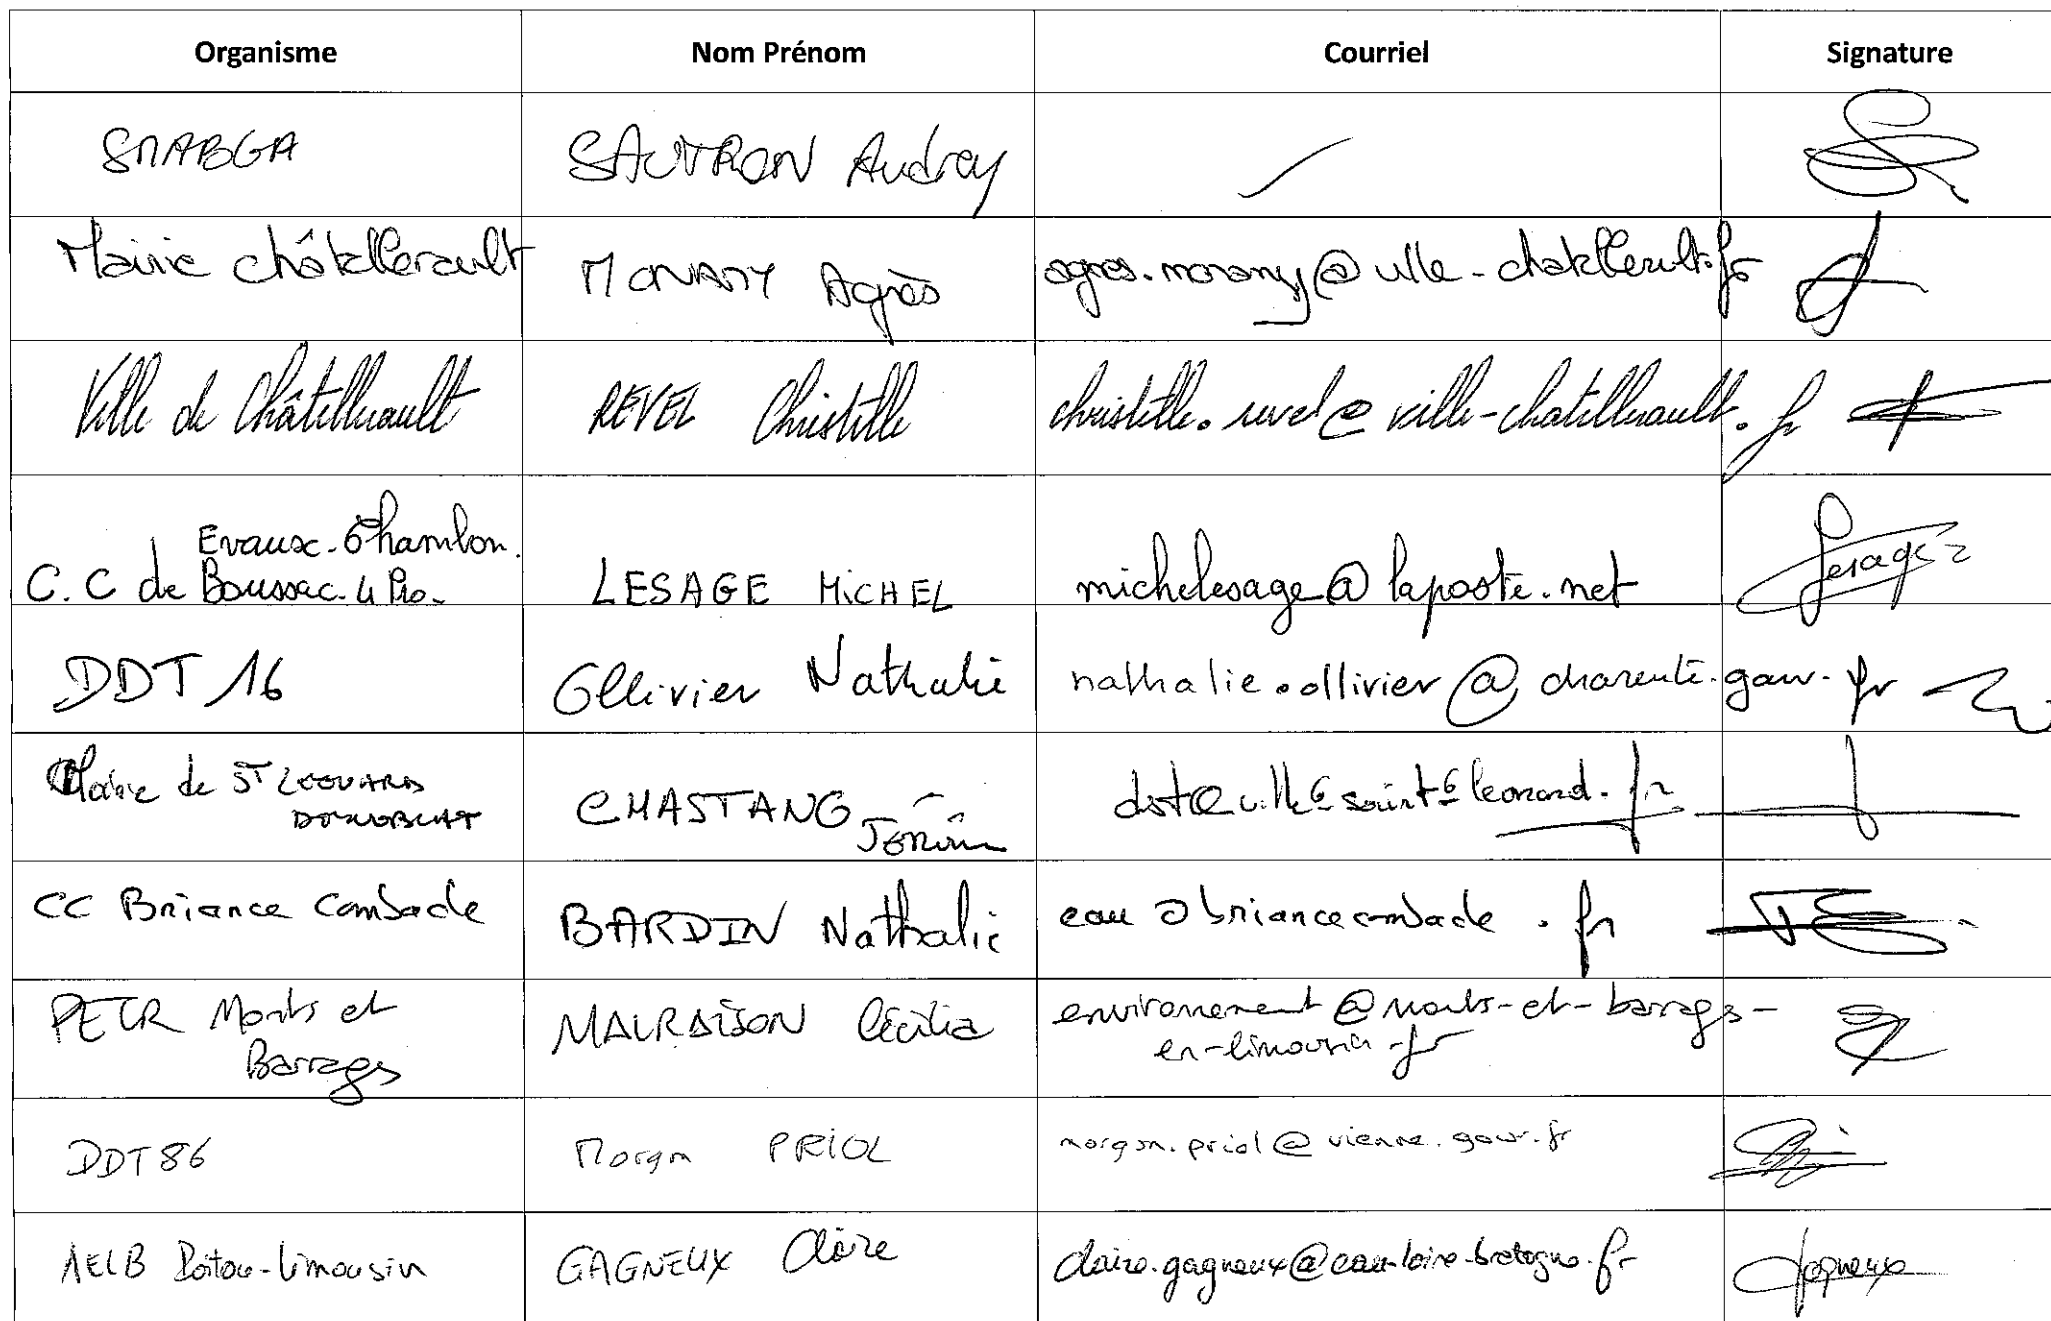 Organisme Nom Prénom Courriel Signature
SMABGA SAUTRON Audrey
Mairie châtellerault Agnès
Ville de Châtellerault REVEL Christelle christelle.revel@ville-chatellerault.fr
Evaux-Chambon.
C.C de Boussac. LESAGE MiCHEL michelesage@laposte.net Lesage
DDT 16 Ollivier Nathalie nathalie.ollivier@charente.gouv.fr
Mairie de ST LEONARD CHASTANG
CC Briance Combade BARDIN Nathalie eau@briancecombade.fr
PETR Monts et MAURAISON Cécilia environnement@monts-et-barrages-
Barrages en-limousin.fr
DDT86 Morgan PRIOL morgan.priol@vienne.gouv.fr
AELB Poitou-Limousin GAGNEUX Claire claire.gagneux@eau-loire-bretagne.fr Gagneux